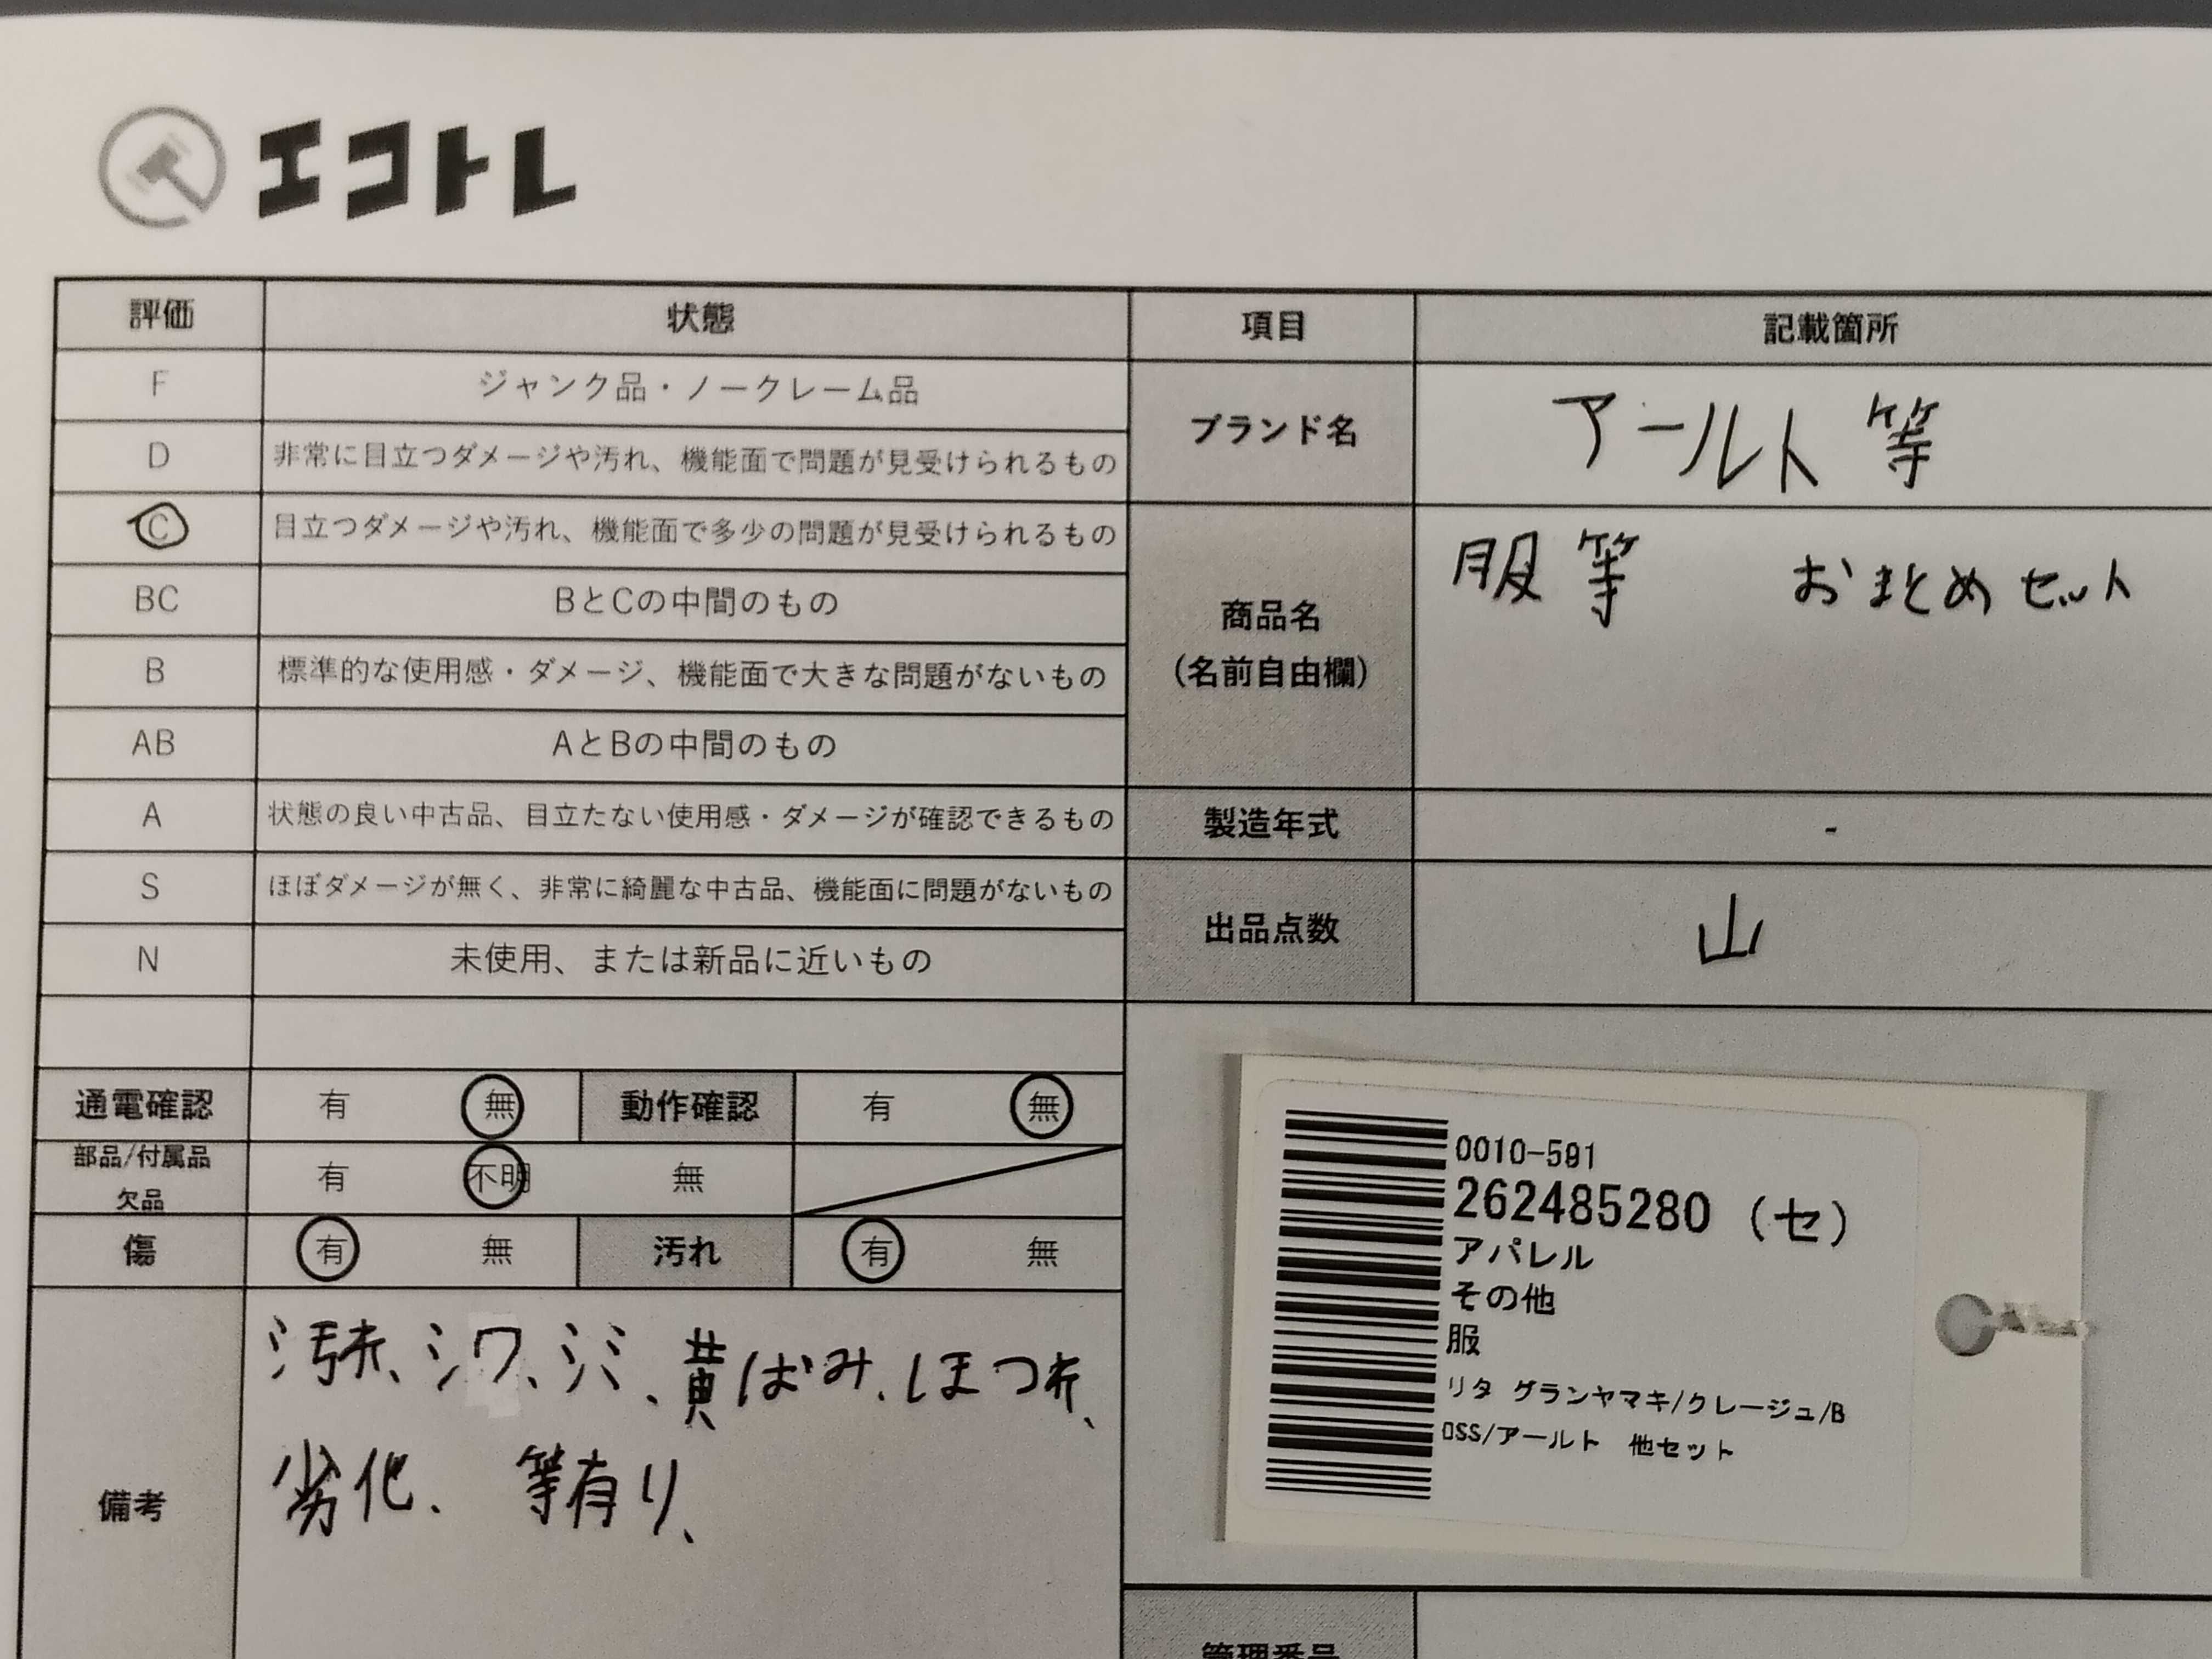 エコトレ
評価 状態
F ジャンク品・ノークレーム品
D 非常に目立つダメージや汚れ、機能面で問題が見受けられるもの
C 目立つダメージや汚れ、機能面で多少の問題が見受けられるもの
BC BとCの中間のもの
B 標準的な使用感・ダメージ、機能面で大きな問題がないもの
AB AとBの中間のもの
A 状態の良い中古品、目立たない使用感・ダメージが確認できるもの
S ほぼダメージが無く、非常に綺麗な中古品、機能面に問題がないもの
N 未使用、または新品に近いもの
通電確認 有 無 動作確認 有 無
部品/付属品
欠品 有 不明 無
傷 有 無 汚れ 有 無
備考
汚れ、シワ、シミ、黄ばみ、ほつれ、
劣化、等有り、
項目 記載箇所
ブランド名 アールト等
商品名
(名前自由欄)
服等 おまとめセット
製造年式 -
出品点数 山
0010-591
262485280 (セ)
アパレル
その他
服
リタ グランヤマキ/クレージュ/B
OSS/アールト 他セット
管理番号